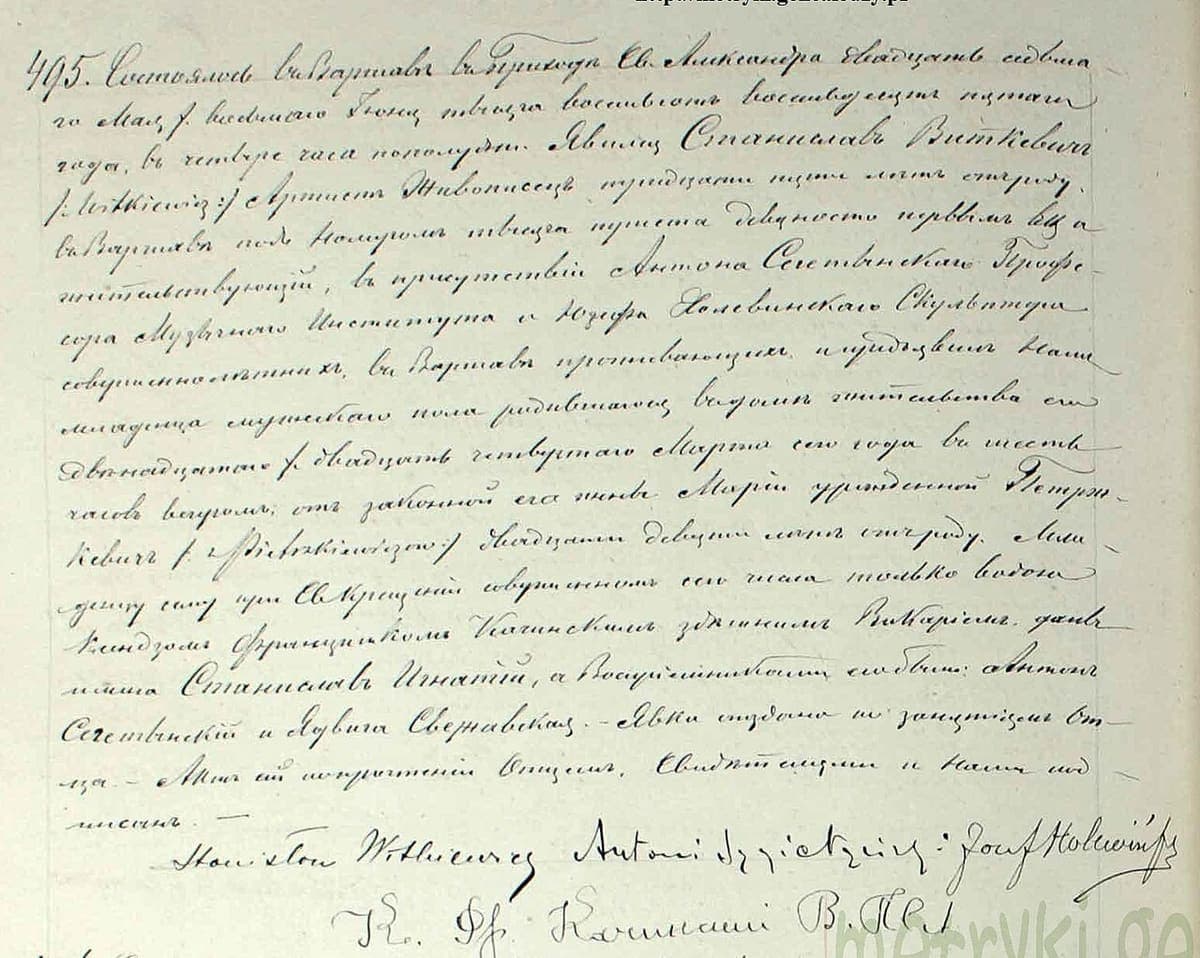 495. Состоялось въ Варшавѣ въ Приходѣ Св. Александра двадцать седьма-
го Мая /: восьмаго Іюня тысяча восемьсотъ восемьдесятъ пятаго
года, въ четыре часа пополудни. Явился Станиславъ Виткевичъ
/: Witkiewicz :/ Артистъ Живописецъ тридцати пяти лѣтъ отъ роду,
въ Варшавѣ подъ номеромъ тысяча триста девяносто первымъ
жительствующій, въ присутствіи Антона Сегетынскаго Профе-
сора Музычнаго Института и Юзефа Холевинскаго Скульптора
совершеннолѣтнихъ, въ Варшавѣ проживающихъ, и предъявилъ Намъ
младенца мужескаго пола родившагося въ домѣ жительства его
двѣнадцатаго /: двадцать четвертаго Марта сего года въ шесть
часовъ вечеромъ, отъ законной его жены Маріи урожденной Петрж-
кевичъ /: Pietrzkiewiczów :/ двадцати девяти лѣтъ отъ роду. Мла-
денцу сему при Св. Крещеніи совершенномъ сего числа только водою
Ксендзомъ Францишкомъ Кочинскимъ здѣшнимъ Викаріемъ, дано
имена Станиславъ Игнатій, а Воспріемниками его были: Антонъ
Сегетынскій и Ядвига Свежавская. — Явка опоздана по занятіямъ От-
ца. — Актъ сей по прочтеніи Отцемъ, Свидѣтелями и Нами под-
писанъ. —
Stanisław Witkiewicz Antoni Sygietyński: Józef Holewiński
К. Фр. В.
metryki.ge